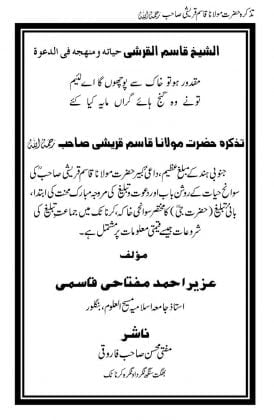 تذکرہ حضرت مولانا قاسم قریشی صاحب رحمۃ اللہ علیہ
الشیخ قاسم القرشی حیاتہ ومنهجه فی الدعوۃ
مقدور ہو تو خاک سے پوچھوں گا اے لئیم
تو نے وہ گنج ہائے گراں مایہ کیا کئے
تذکرہ حضرت مولانا قاسم قریشی صاحب رحمۃ اللہ علیہ
جنوبی ہند کے مبلغ عظیم، داعی کبیر حضرت مولانا قاسم قریشی صاحب کی
سوانح حیات کے روشن باب اور دعوت و تبلیغ کی مروجہ مبارک محنت کی ابتدا،
بانی تبلیغ (حضرت جی) کا مختصر سوانحی خاکہ، کرناٹک میں جماعت تبلیغ کی
شروعات جیسے قیمتی معلومات پر مشتمل ہے۔
مؤلف
عزیر احمد مفتاحی قاسمی
استاذ جامعہ اسلامیہ مسیح العلوم، بنگلور
ناشر
مفتی محسن صاحب فاروقی
بھگت سنگھ نگر داونگرہ کرناٹک